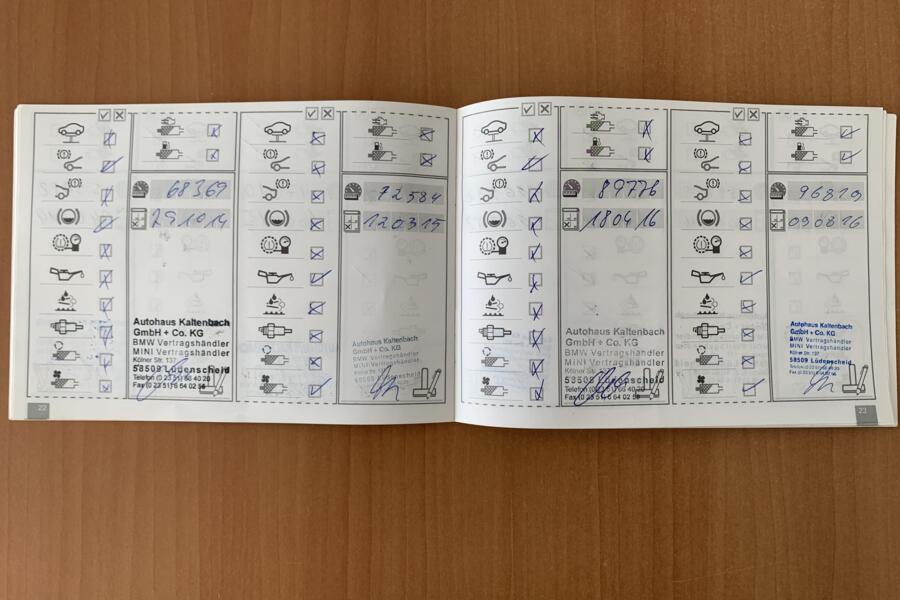 68369
291014
Autohaus Kaltenbach
GmbH + Co. KG
BMW Vertragshändler
MINI Vertragshändler
Kölner Str. 137
58509 Lüdenscheid
Telefon (0 23 51) 66 40 20
Fax (0 23 51) 6 64 02 56
22
72584
120315
Autohaus Kaltenbach
GmbH + Co. KG
BMW Vertragshändler
MINI Vertragshändler
89776
180416
Autohaus Kaltenbach
GmbH + Co. KG
BMW Vertragshändler
MINI Vertragshändler
Kölner Str. 137
58509 Lüdenscheid
Telefon (0 23 51) 66 40 20
Fax (0 23 51) 6 64 02 56
96819
090816
Autohaus Kaltenbach
GmbH + Co. KG
BMW Vertragshändler
MINI Vertragshändler
Kölner Str. 137
58509 Lüdenscheid
23